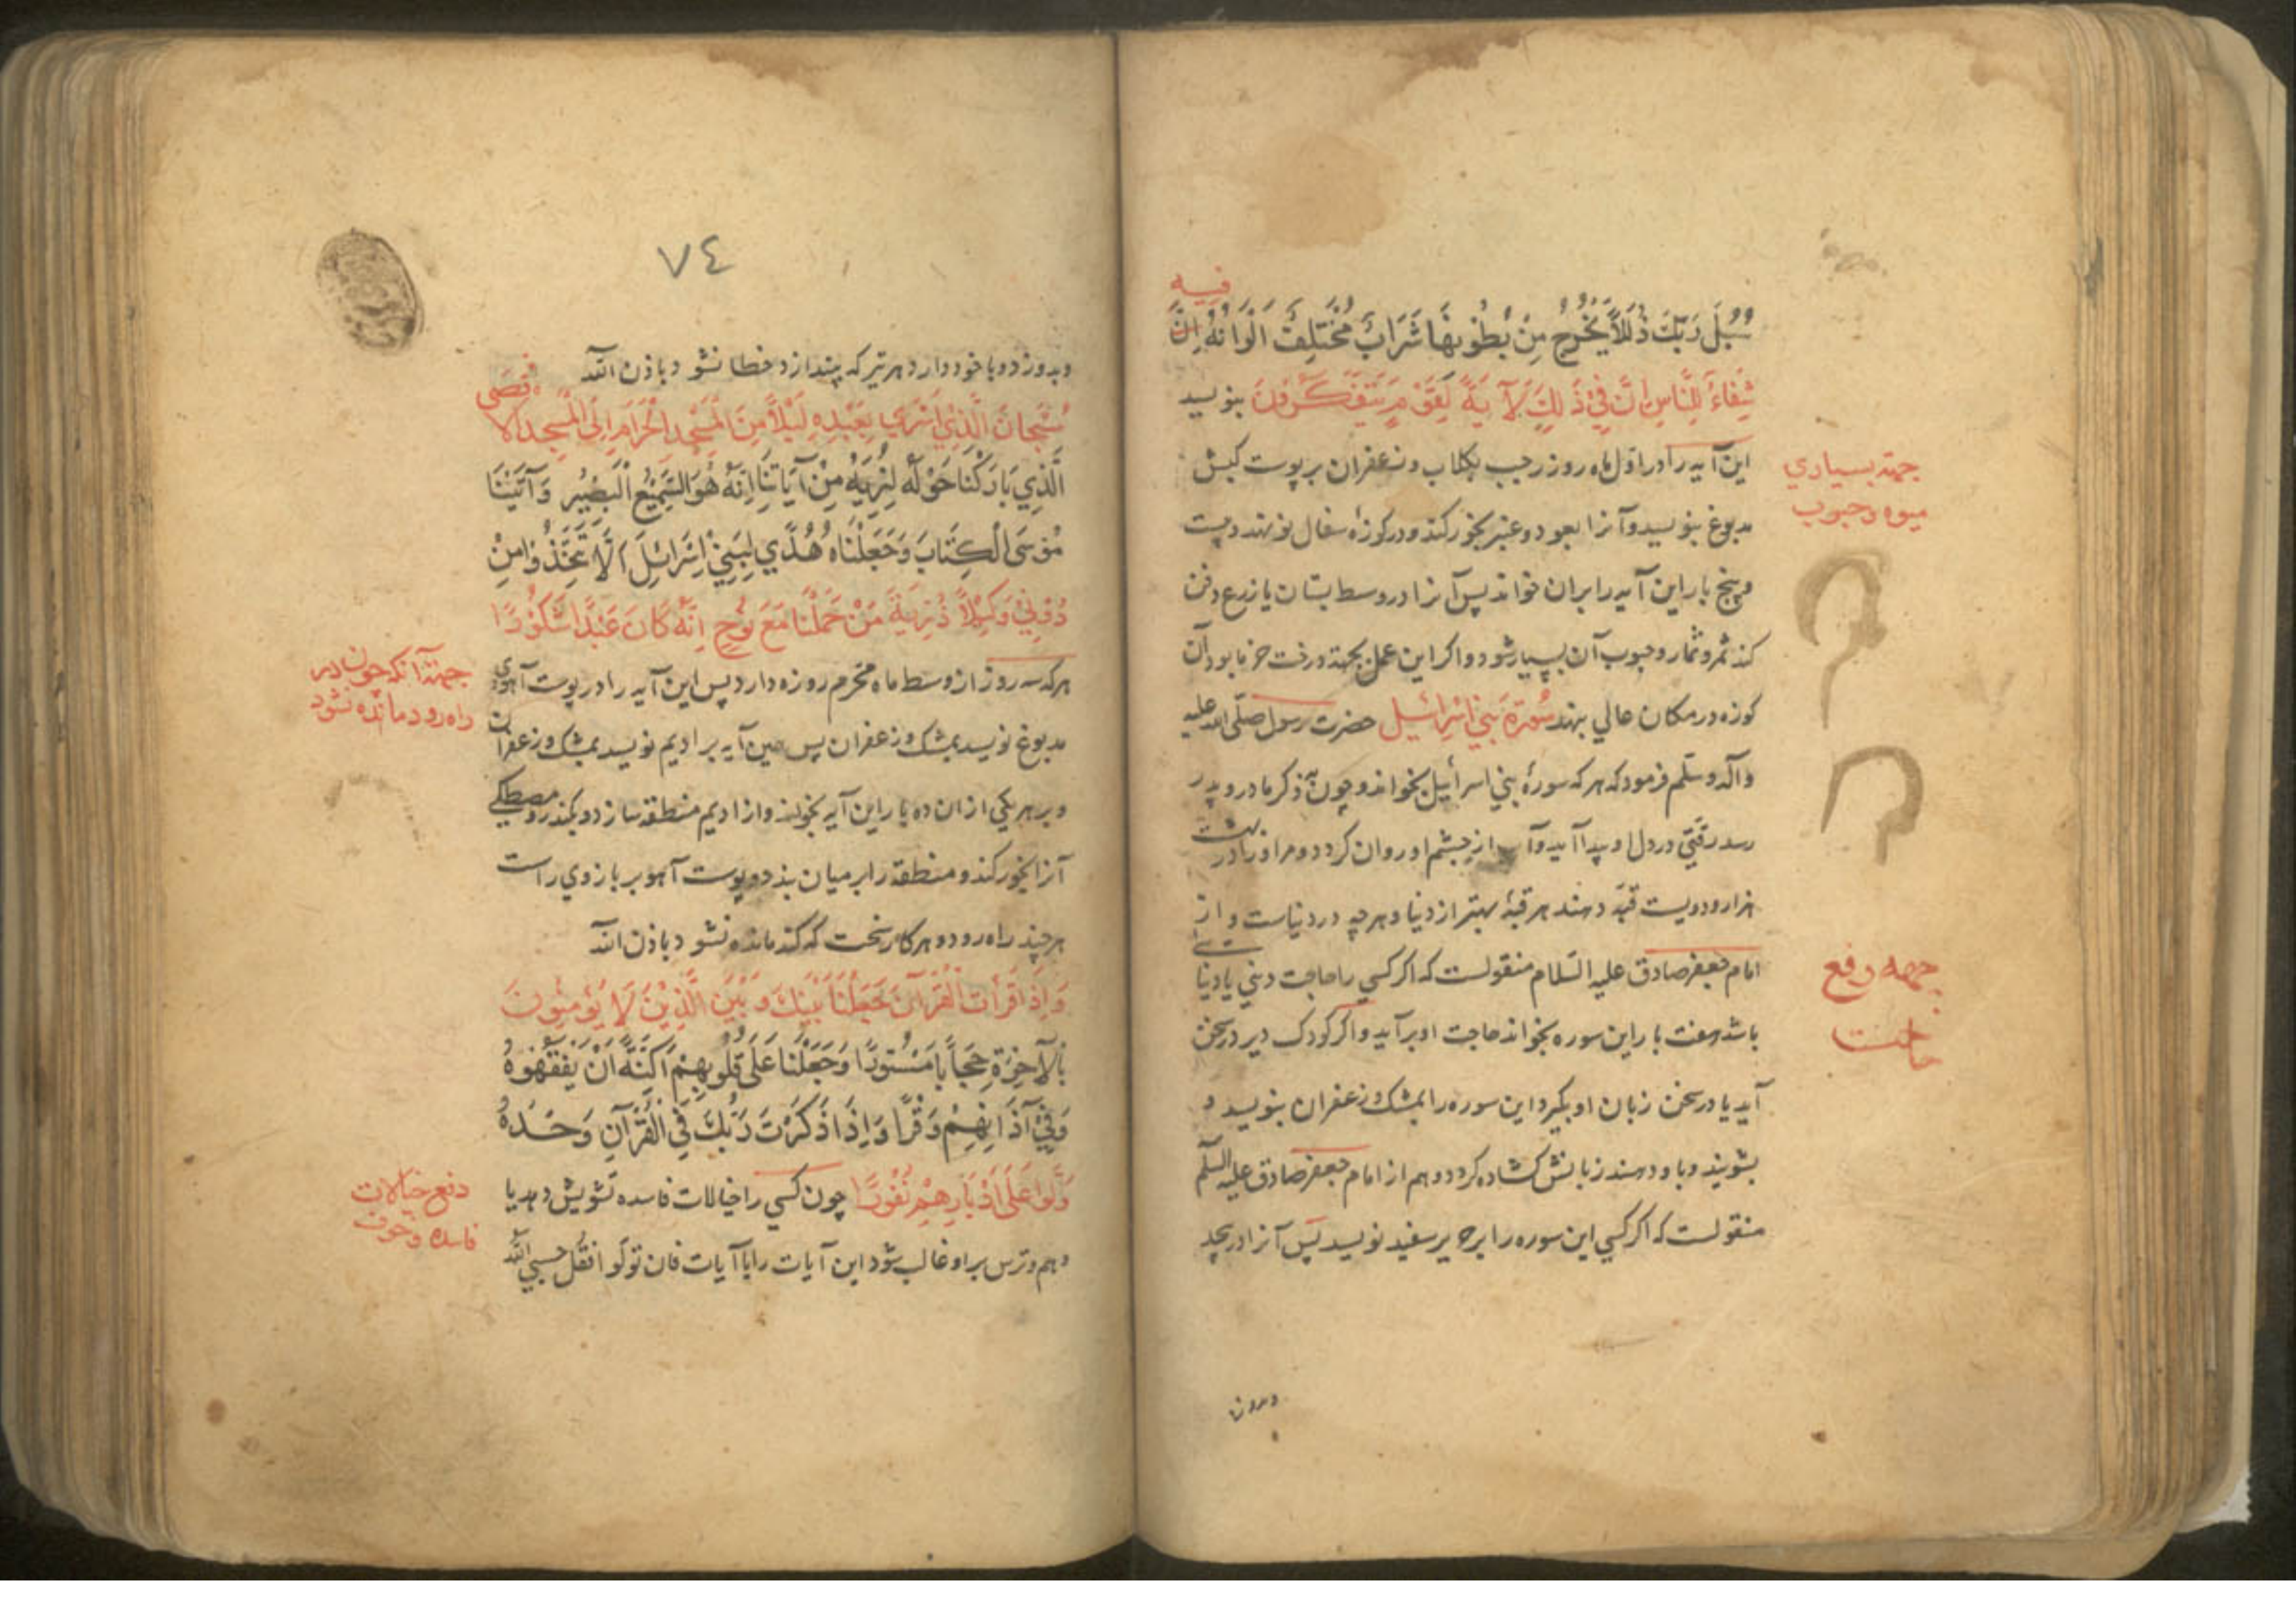 فیه
سُبُلَ رَبِّكَ ذُلُلاً يَخْرُجُ مِنْ بُطُونِهَا شَرَابٌ مُخْتَلِفٌ اَلْوَانُهُ اِنَّ
شِفَاءٌ لِلنَّاسِ اِنَّ فِي ذَلِكَ لَآيَةً لِقَوْمٍ يَتَفَكَّرُونَ بنویسد
جهته بسیاری
میوه و حبوب
این آیه را در اول ماه روز رجب بکلاب و زعفران بر پوست کبش
مدبوغ بنویسد و آنرا بعود و عنبر بخور کند و در کوزه سفال نو نهد و بیست
و پنج بار این آیه را بران خواند پس آنرا در وسط بستان یا زرع دفن
کند ثمر و ثمار و حبوب آن بسیار شود و اکر این عمل بجهته درخت خرما بود آن
کوزه در مکان عالی نهد سُورَة بَنِي اِسْرَائِيل حضرت رسول صلّی الله علیه
و آله و سلّم فرمود که هر که سورهٔ بنی اسرائیل بخواند و چون بذکر مادر و پدر
رسد رقتی در دل او پیدا آید و آب از چشم او روان کردد و مر او را در بهشت
هزار و دویست قبه دهند هر قبهٔ بهتر از دنیا و هر چه در دنیاست و از
جهه رفع
حاجت
امام جعفر صادق علیه السّلام منقولست که اکر کسی را حاجت دینی یا دنیا
باشد هفت بار این سوره بخواند حاجت او بر آید و اکر کودک دیر در سخن
آید یا در سخن زبان او بگیرد این سوره را بمشک و زعفران بنویسد و
بشویند و باو دهند زبانش کشاده کردد و هم از امام جعفر صادق علیه السلم
منقولست که اکر کسی این سوره را بر حریر سفید نویسد پس آنرا در پیچد
وبدوز
٧٤
وبدوزد و با خود دارد هر تیر که بیندازد خطا نشود باذن الله
سُبْحَانَ الَّذِي اَسْرَى بِعَبْدِهِ لَيْلاً مِنَ الْمَسْجِدِ الْحَرَامِ اِلَى الْمَسْجِدِ الْاَقْصَى
الَّذِي بَارَكْنَا حَوْلَهُ لِنُرِيَهُ مِنْ آيَاتِنَا اِنَّهُ هُوَ السَّمِيعُ الْبَصِيرُ وَآتَيْنَا
مُوسَى الْكِتَابَ وَجَعَلْنَاهُ هُدًى لِبَنِي اِسْرَائِلَ اَلَّا تَتَّخِذُوا مِنْ
دُونِي وَكِيلاً ذُرِّيَةَ مَنْ حَمَلْنَا مَعَ نُوحٍ اِنَّهُ كَانَ عَبْدًا شَكُورًا
جهته آنکه چون در
راه رود مانده نشود
هر که سه روز از وسط ماه محرم روزه دارد پس این آیه را در پوست آهوی
مدبوغ نویسد بمشک و زعفران پس همین آیه بر ادیم نویسد بمشک و زعفران
و بر هر یکی از ان ده بار این آیه بخواند و از ادیم منطقه سازد و بکندر و مصطکی
آنرا بخور کند و منطقه را بر میان بندد و پوست آهو بر بازوی راست
هر چند راه رود و هر کار سخت که کند مانده نشود باذن الله
وَاِذَا قَرَأْتَ الْقُرْآنَ جَعَلْنَا بَيْنَكَ وَبَيْنَ الَّذِينَ لَا يُؤْمِنُونَ
بِالْآخِرَةِ حِجَابًا مَسْتُورًا وَجَعَلْنَا عَلَى قُلُوبِهِمْ اَكِنَّةً اَنْ يَفْقَهُوهُ
وَفِي آذَانِهِمْ وَقْرًا وَاِذَا ذَكَرْتَ رَبَّكَ فِي الْقُرْآنِ وَحْدَهُ
وَلَّوْا عَلَى اَدْبَارِهِمْ نُفُورًا چون کسی را خیالات فاسده تشویش دهد یا
دفع خیالات
فاسده و خوف
وهم و ترس بر او غالب شود این آیات را با آیات فان تولّوا فقل حسبی الله